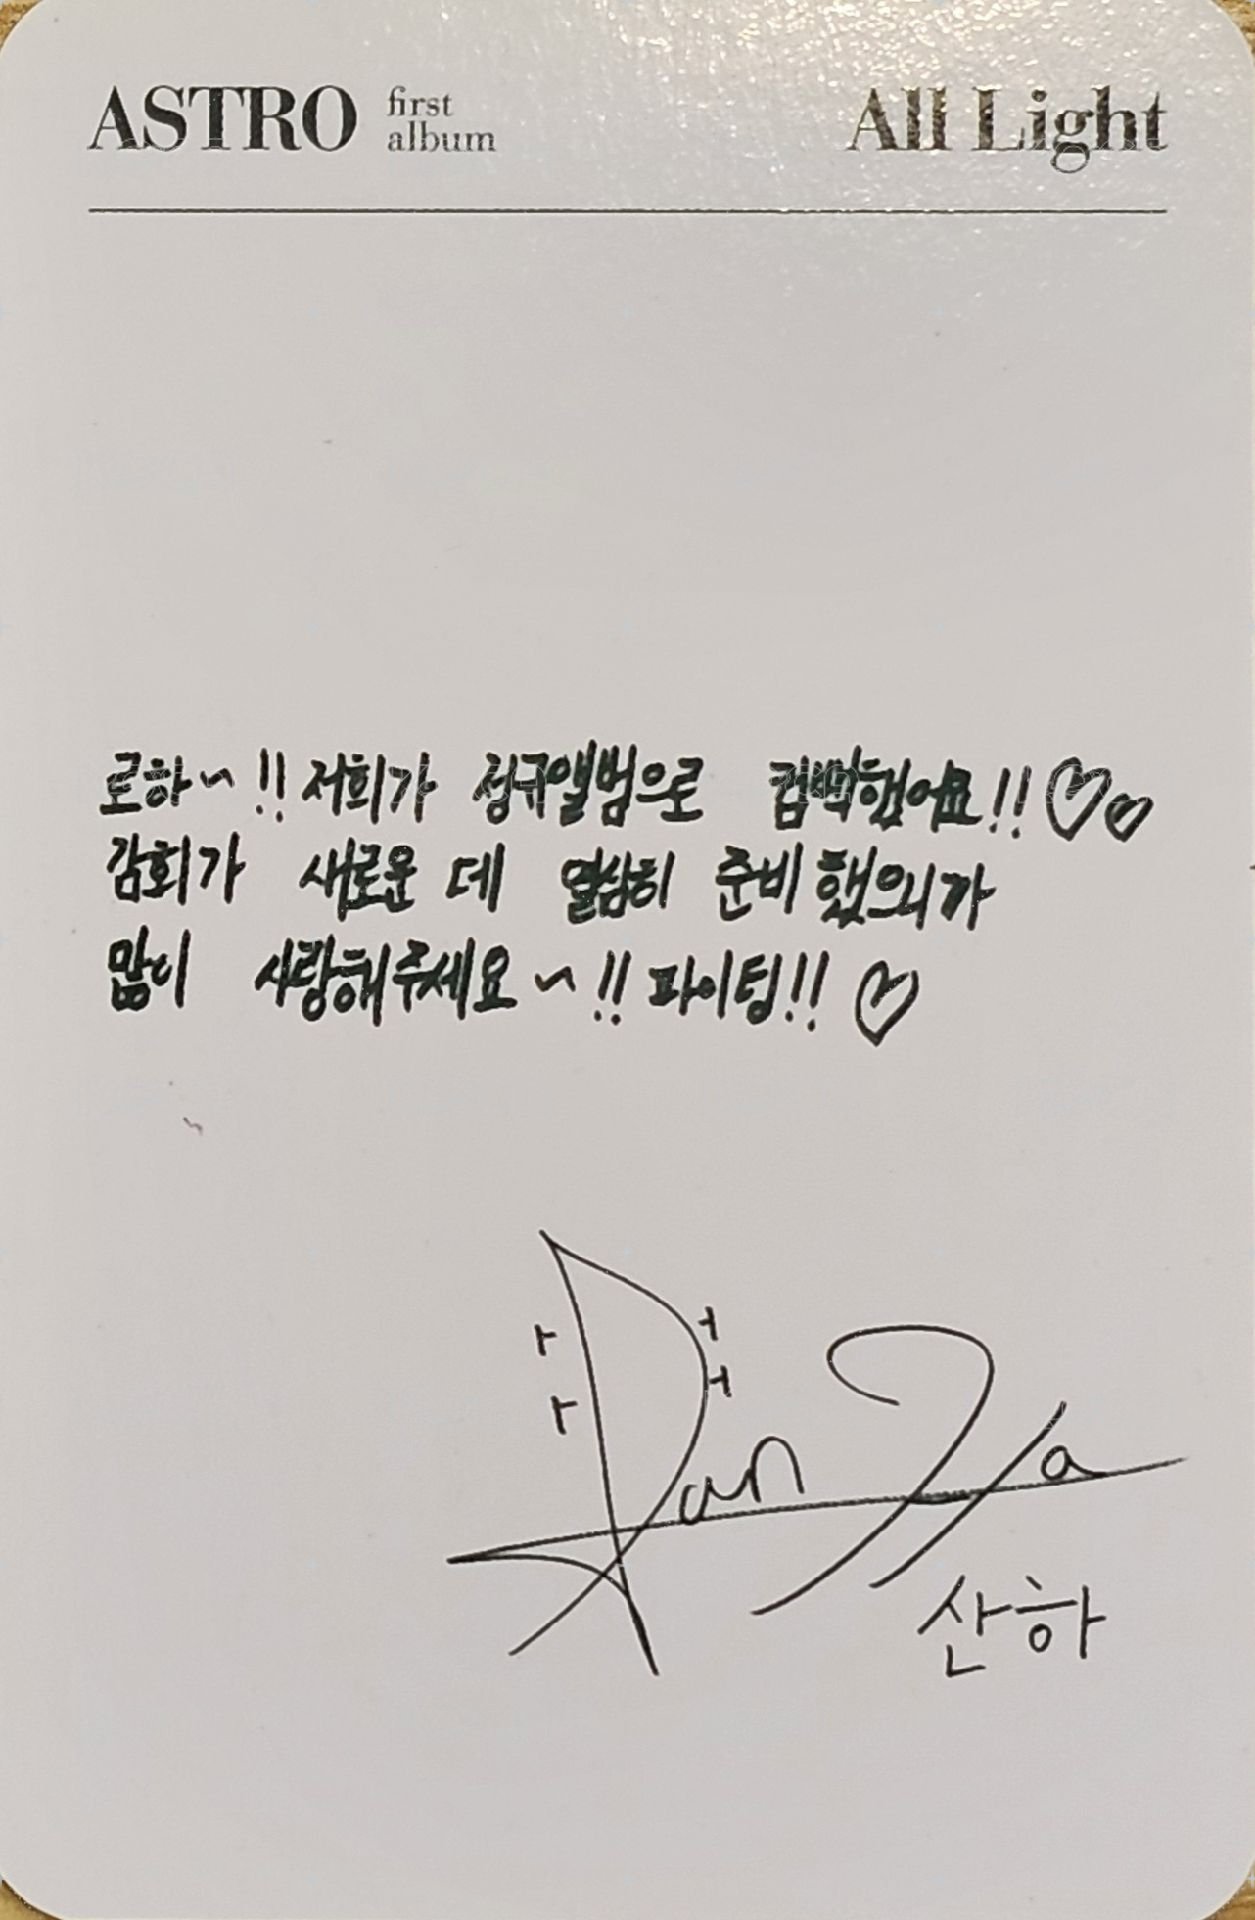 ASTRO first album All Light
로하~!! 저희가 정규앨범으로 컴백했어요!! ♡♡
감회가 새로운 데 열심히 준비했으니가
많이 사랑해주세요~!! 파이팅!! ♡
SanHa
산하